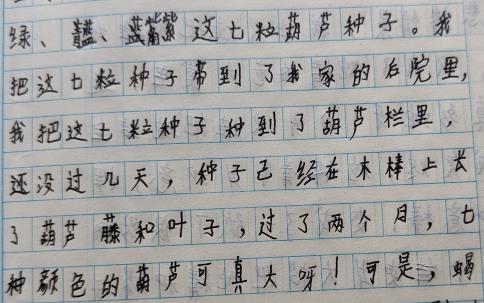 绿、蓝紫这七粒葫芦种子。我
把这七粒种子带到了我家的后院里，
我把这七粒种子种到了葫芦栏里，
还没过几天，种子已经在木棒上长
了葫芦藤和叶子，过了两个月，七
种颜色的葫芦可真大呀！可是，蝎